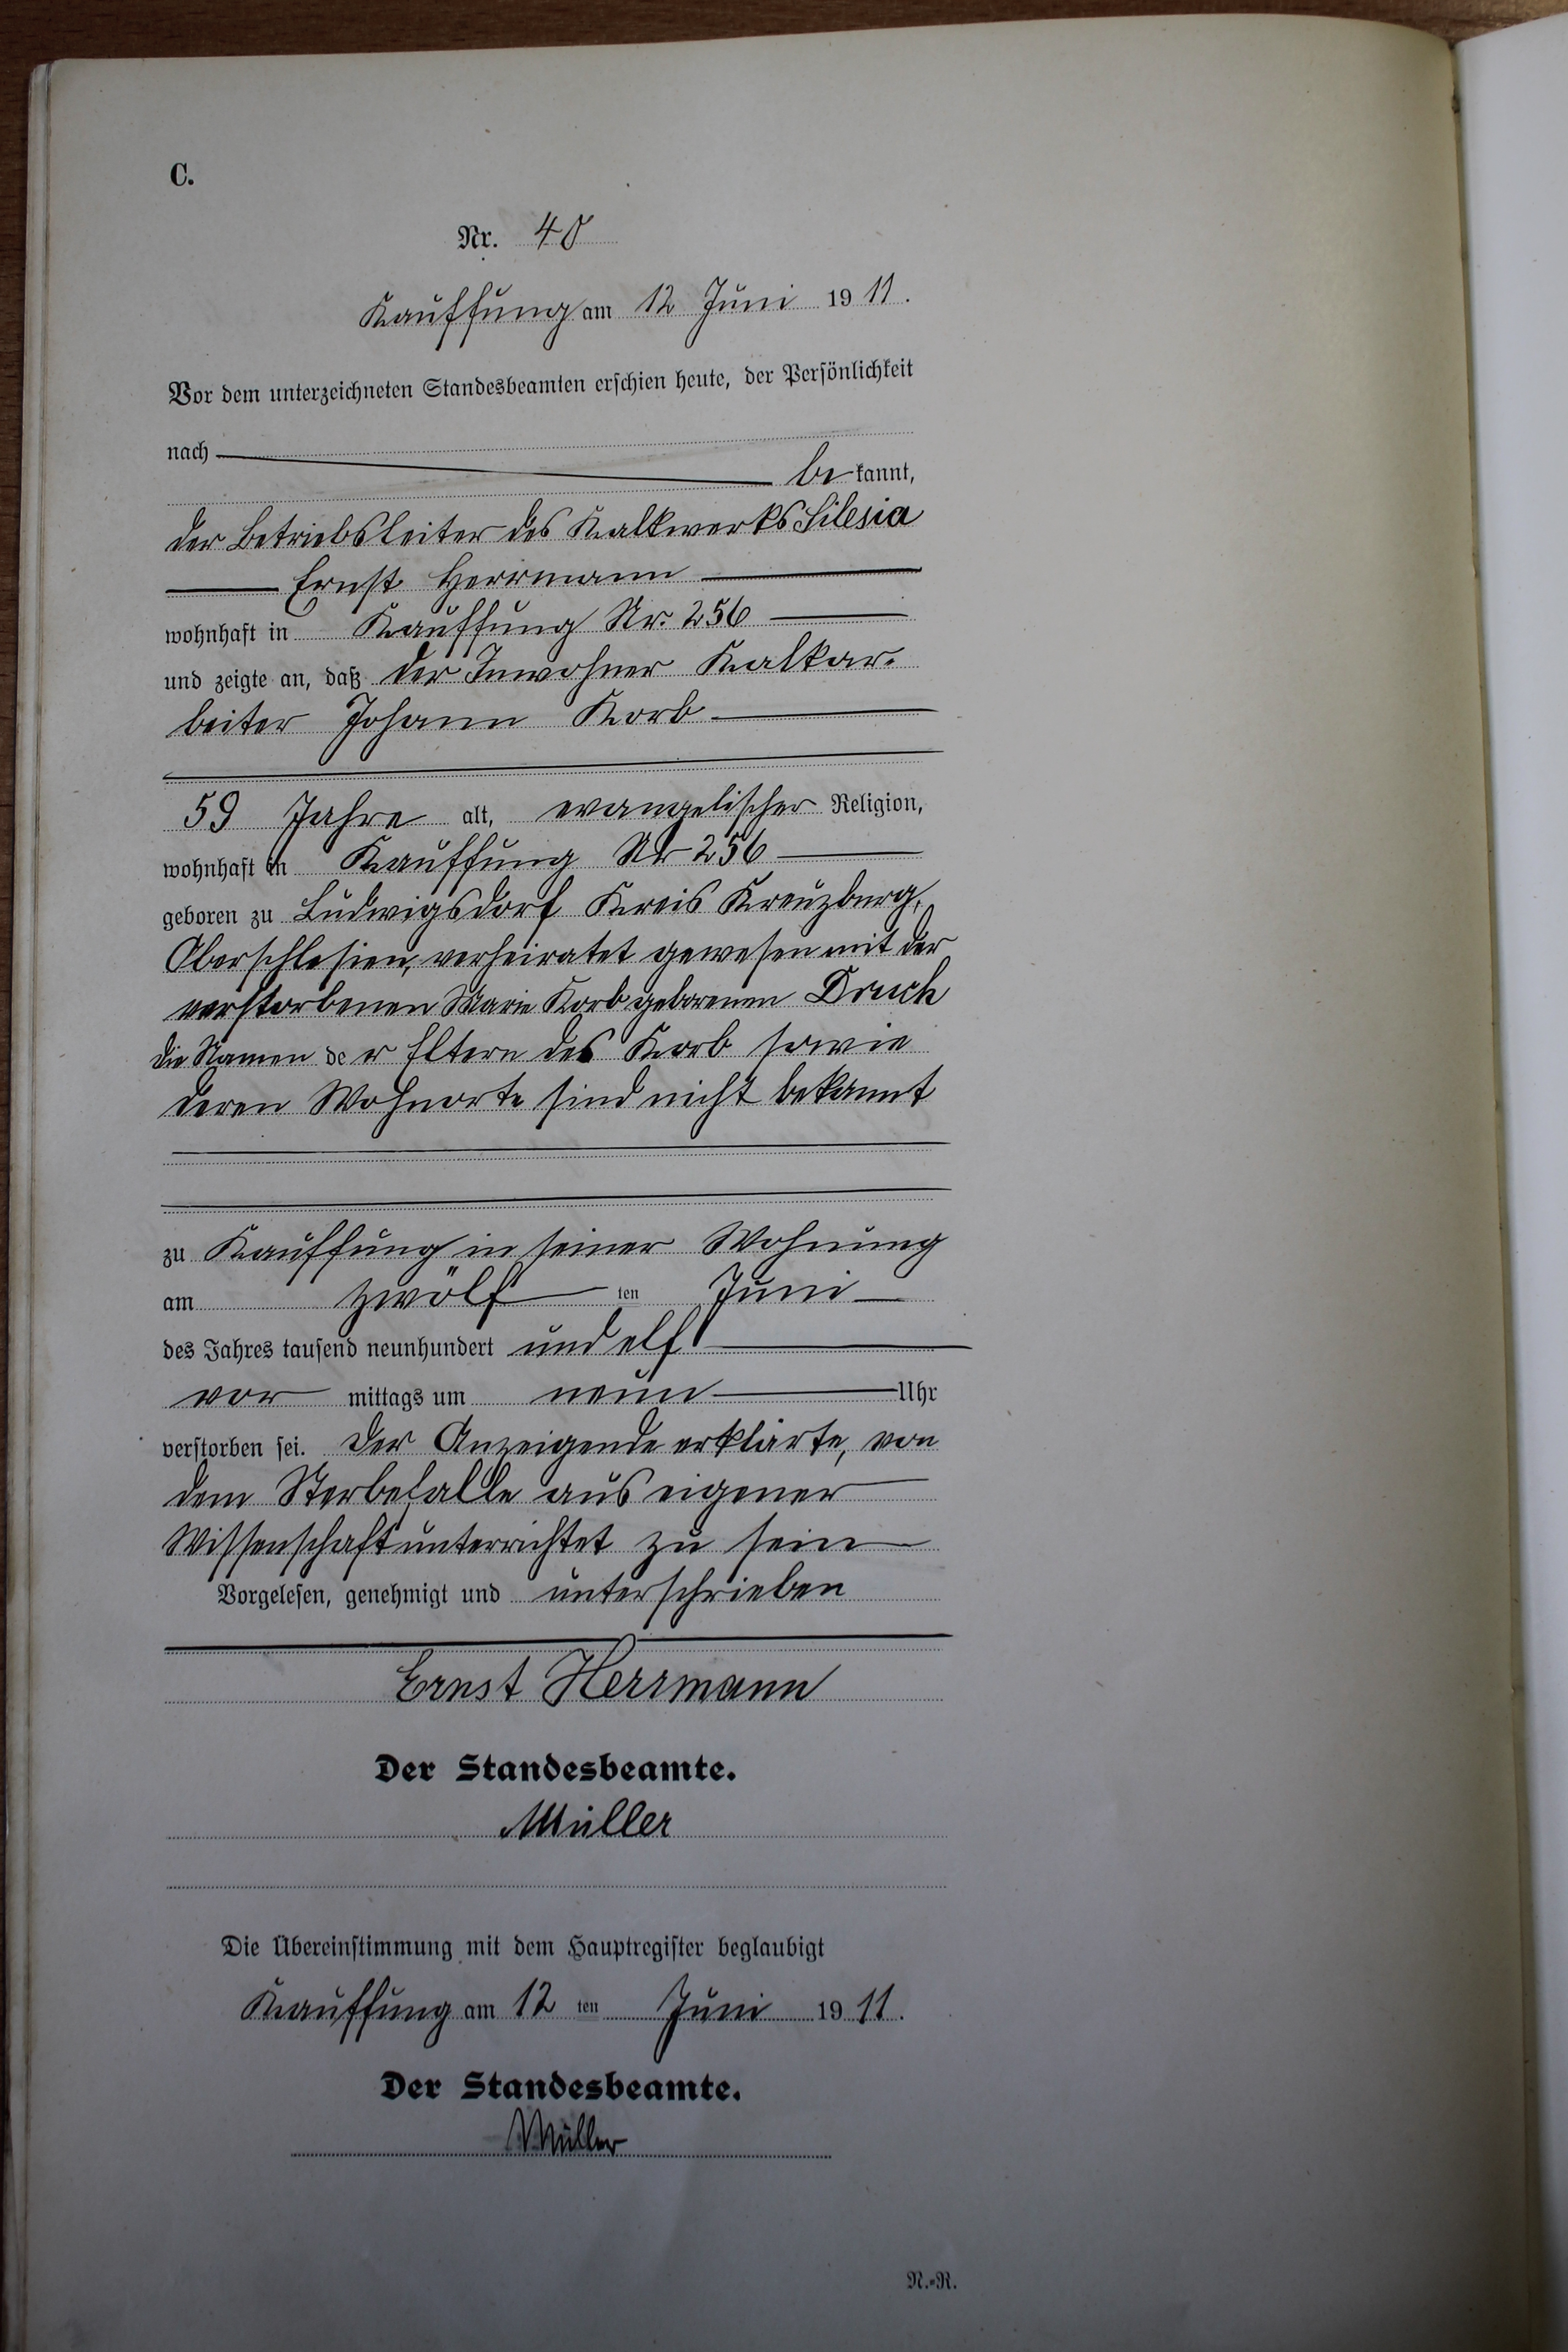 C.
Nr. 40
Kauffung am 12 Juni 1911.
Vor dem unterzeichneten Standesbeamten erschien heute, der Persönlichkeit
nach
bekannt,
der Betriebsleiter des Kalkwerks Silesia
Ernst Herrmann
wohnhaft in Kauffung Nr. 256
und zeigte an, daß der Inwohner Kalkar-
beiter Johann Korb
59 Jahre alt, evangelischer Religion,
wohnhaft in Kauffung Nr 256
geboren zu Ludwigsdorf Kreis Kreuzburg,
Oberschlesien, verheiratet gewesen mit der
verstorbenen Marie Korb geborenen Druch
die Namen der Eltern des Korb sowie
deren Wohnorte sind nicht bekannt
zu Kauffung in seiner Wohnung
am zwölf ten Juni
des Jahres tausend neunhundert und elf
vor mittags um neun Uhr
verstorben sei. Der Anzeigende erklärte, von
dem Sterbefalle aus eigener
Wissenschaft unterrichtet zu sein
Vorgelesen, genehmigt und unterschrieben
Ernst Herrmann
Der Standesbeamte.
Müller
Die Übereinstimmung mit dem Hauptregister beglaubigt
Kauffung am 12 ten Juni 1911.
Der Standesbeamte.
Müller
N.-R.